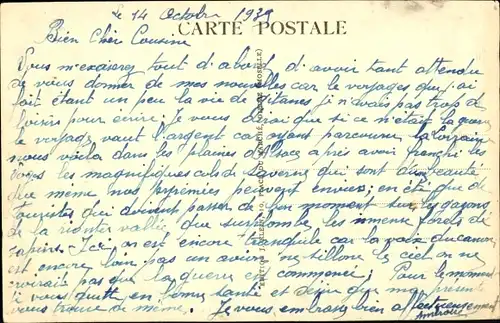 Le 14 Octobre 1939
CARTE POSTALE
Bien Chère Cousine
Vous m'excuserez tout d'abord d'avoir tant attendu
de vous donner de mes nouvelles car le voyages que j'ai
fait étant un peu la vie de Gitanes je n'avais pas trop de
loisirs pour écrire; je vous dirai que si ce n'était la guerre
le voyage vaut l'argent car ayant parcourue la Lorraine
nous voila dans les plaines d'Alsace après avoir franchi les
les magnifiques cols de Saverne qui sont d'une beauté
que même nos pyrénées peuvent envier; en été que de
touristes qui doivent passer de bon moment sur les gazons
de la riante vallée que surplombe les immense forêts de
sapins. Ici on est encore tranquile car la voix du canon
est encore loin pas un avion ne sillone le ciel on ne
croirait pas que la guerre est commencé; Pour le moment
je vous quitte en bonne santé et désire que ma présente
vous trouve de même. Je vous embrasse bien affectueusement